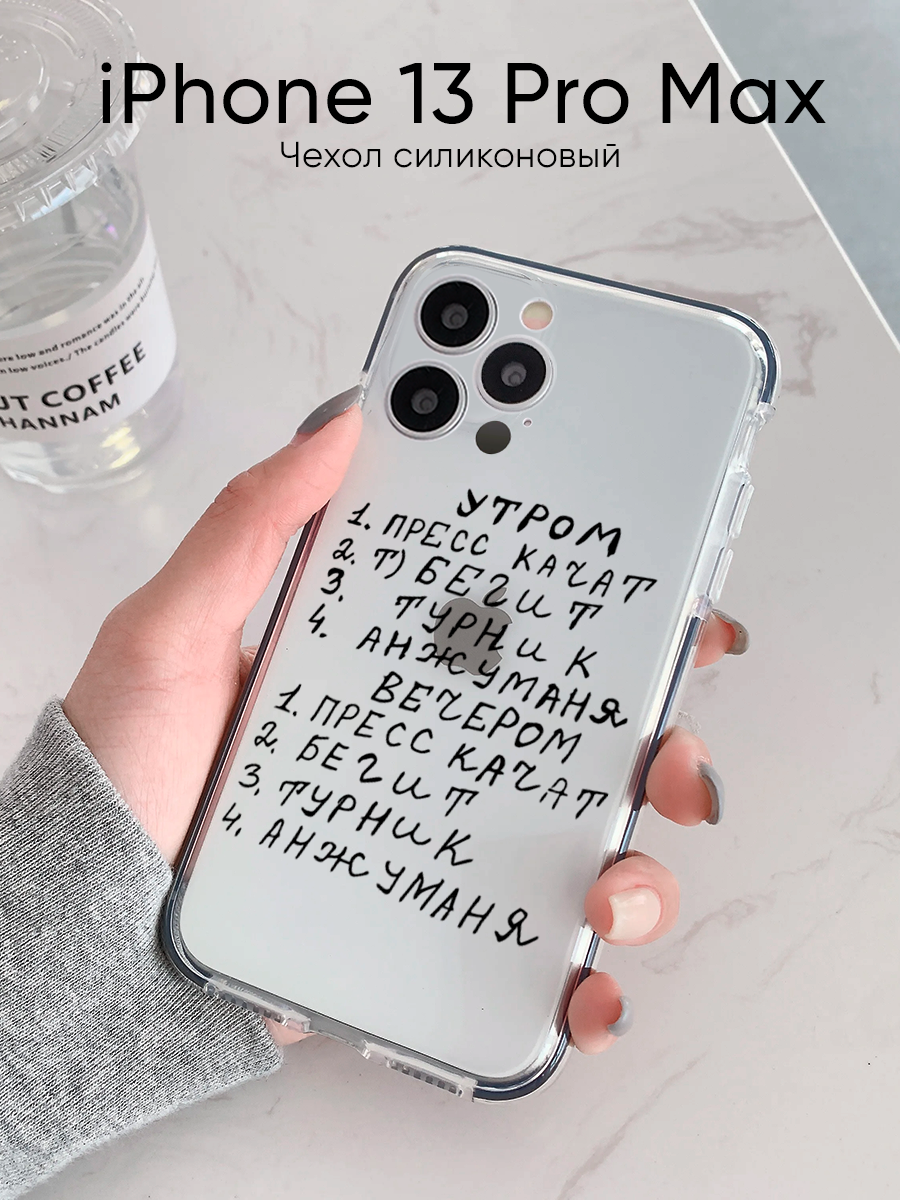 iPhone 13 Pro Max
Чехол силиконовый
low and romance was in the air.
low voices./ The candles were
UT COFFEE
HANNAM
УТРОМ
1. ПРЕСС КАЧАТ
2. Т) БЕГИТ
3. ТУРНИК
4. АНЖУМАНЯ
ВЕЧЕРОМ
1. ПРЕСС КАЧАТ
2. БЕГИТ
3. ТУРНИК
4. АНЖУМАНЯ